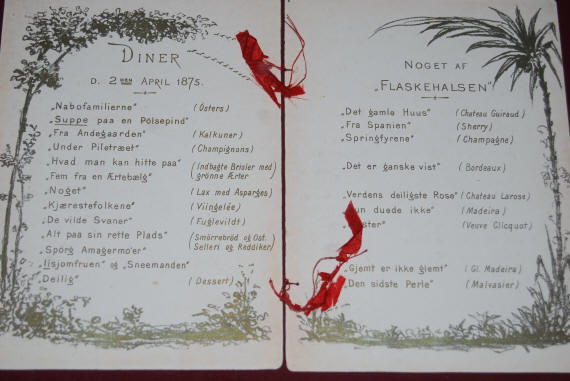 DINER
D. 2DEN APRIL 1875.
„Nabofamilierne" (Osters)
„Suppe paa en Pölsepind"
„Fra Andegaarden" (Kalkuner)
„Under Piletræet" (Champignons)
„Hvad man kan hitte paa" (Indbagte Brisler med
„Fem fra en Ærtebælg" grönne Ærter)
„Noget" (Lax med Asparges)
„Kjærestefolkene" (Viingelée)
„De vilde Svaner" (Fuglevildt)
„Alt paa sin rette Plads" (Smörrebröd og Ost.
„Spörg Amagermo'er" Selleri og Reddiker)
„Iisjomfruen" og „Sneemanden"
„Deilig" (Dessert)
NOGET AF
„FLASKEHALSEN"
„Det gamle Huus" (Chateau Guiraud)
„Fra Spanien" (Sherry)
„Springfyrene" (Champagne)
„Det er ganske vist" (Bordeaux)
„Verdens deiligste Rose" (Chateau Larose)
duede ikke" (Madeira)
(Veuve Clicquot)
„Gjemt er ikke glemt" (Gl. Madeira)
„Den sidste Perle" (Malvasier)